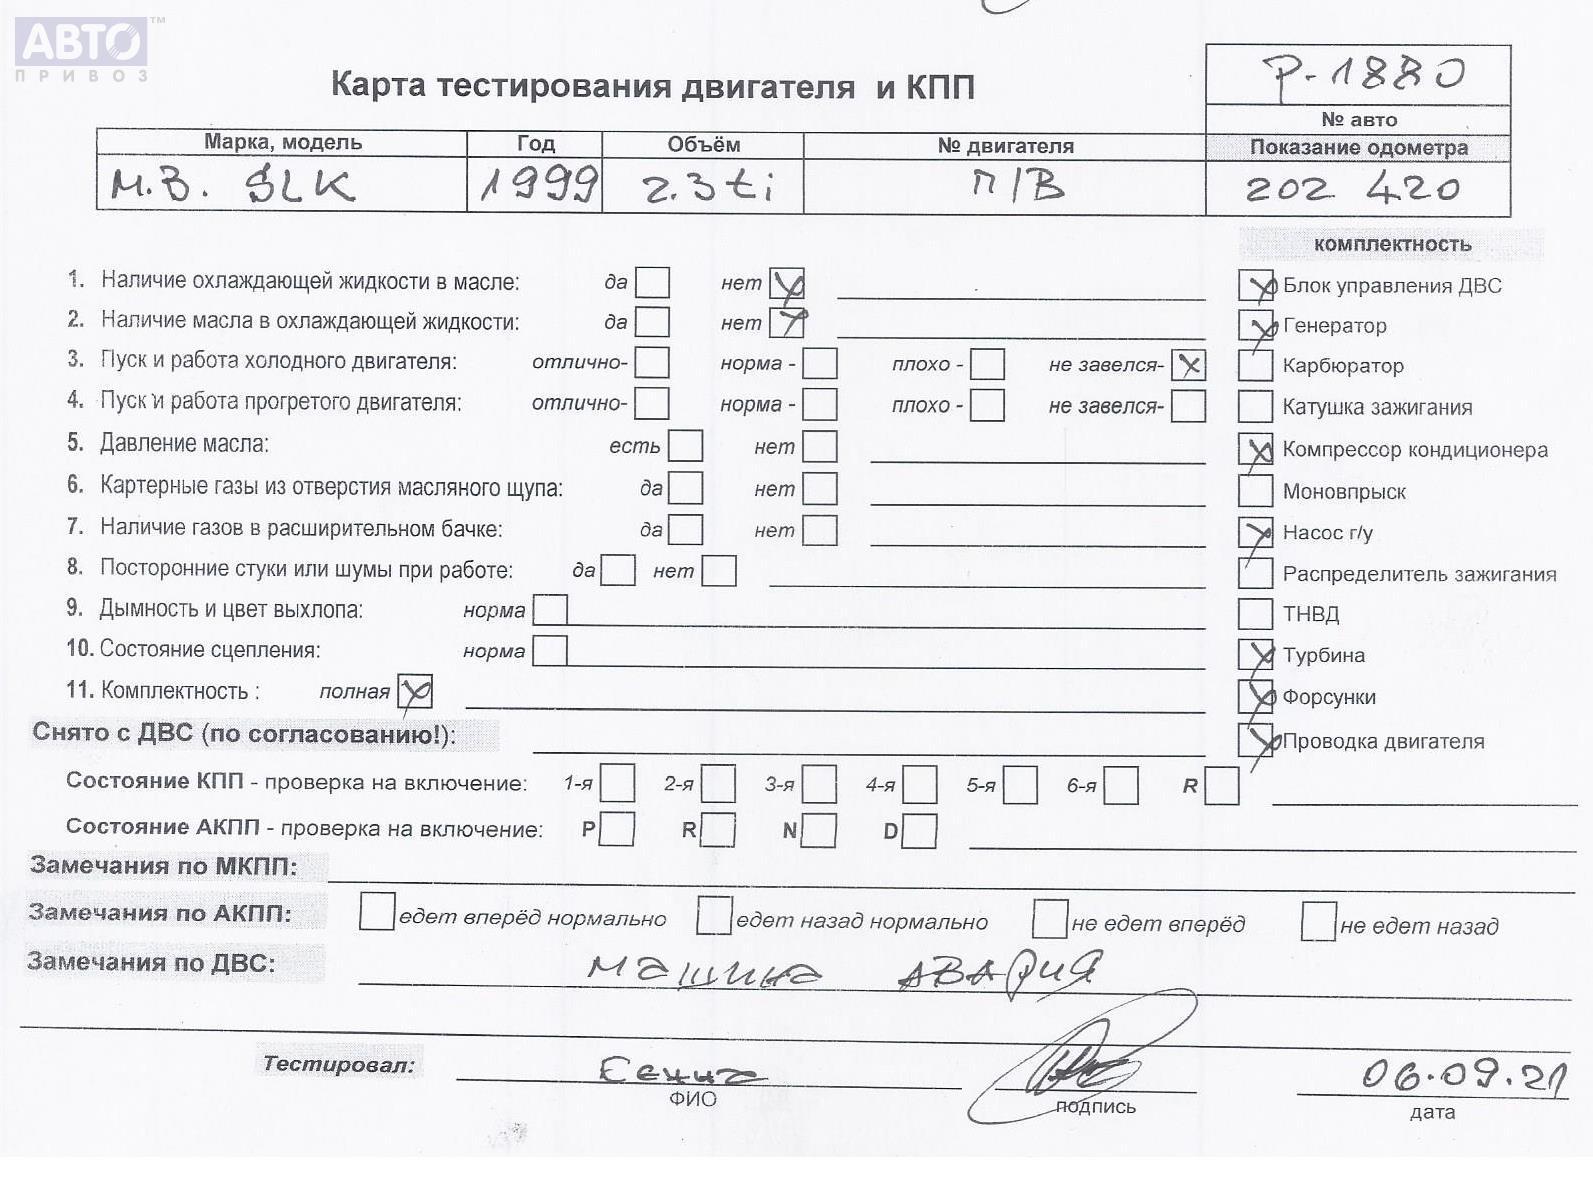 АВТО™
ПРИВОЗ
Карта тестирования двигателя и КПП
P-1880
№ авто
Марка, модель Год Объём № двигателя Показание одометра
M.B. SLK 1999 2.3ti П/В 202 420
комплектность
1. Наличие охлаждающей жидкости в масле: да нет Блок управления ДВС
2. Наличие масла в охлаждающей жидкости: да нет Генератор
3. Пуск и работа холодного двигателя: отлично- норма - плохо - не завелся- Карбюратор
4. Пуск и работа прогретого двигателя: отлично- норма - плохо - не завелся- Катушка зажигания
5. Давление масла: есть нет Компрессор кондиционера
6. Картерные газы из отверстия масляного щупа: да нет Моновпрыск
7. Наличие газов в расширительном бачке: да нет Насос г/у
8. Посторонние стуки или шумы при работе: да нет Распределитель зажигания
9. Дымность и цвет выхлопа: норма ТНВД
10. Состояние сцепления: норма Турбина
11. Комплектность : полная Форсунки
Снято с ДВС (по согласованию!): Проводка двигателя
Состояние КПП - проверка на включение: 1-я 2-я 3-я 4-я 5-я 6-я R
Состояние АКПП - проверка на включение: P R N D
Замечания по МКПП:
Замечания по АКПП: едет вперёд нормально едет назад нормально не едет вперёд не едет назад
Замечания по ДВС: машина авария
Тестировал: 06.09.21
ФИО подпись дата